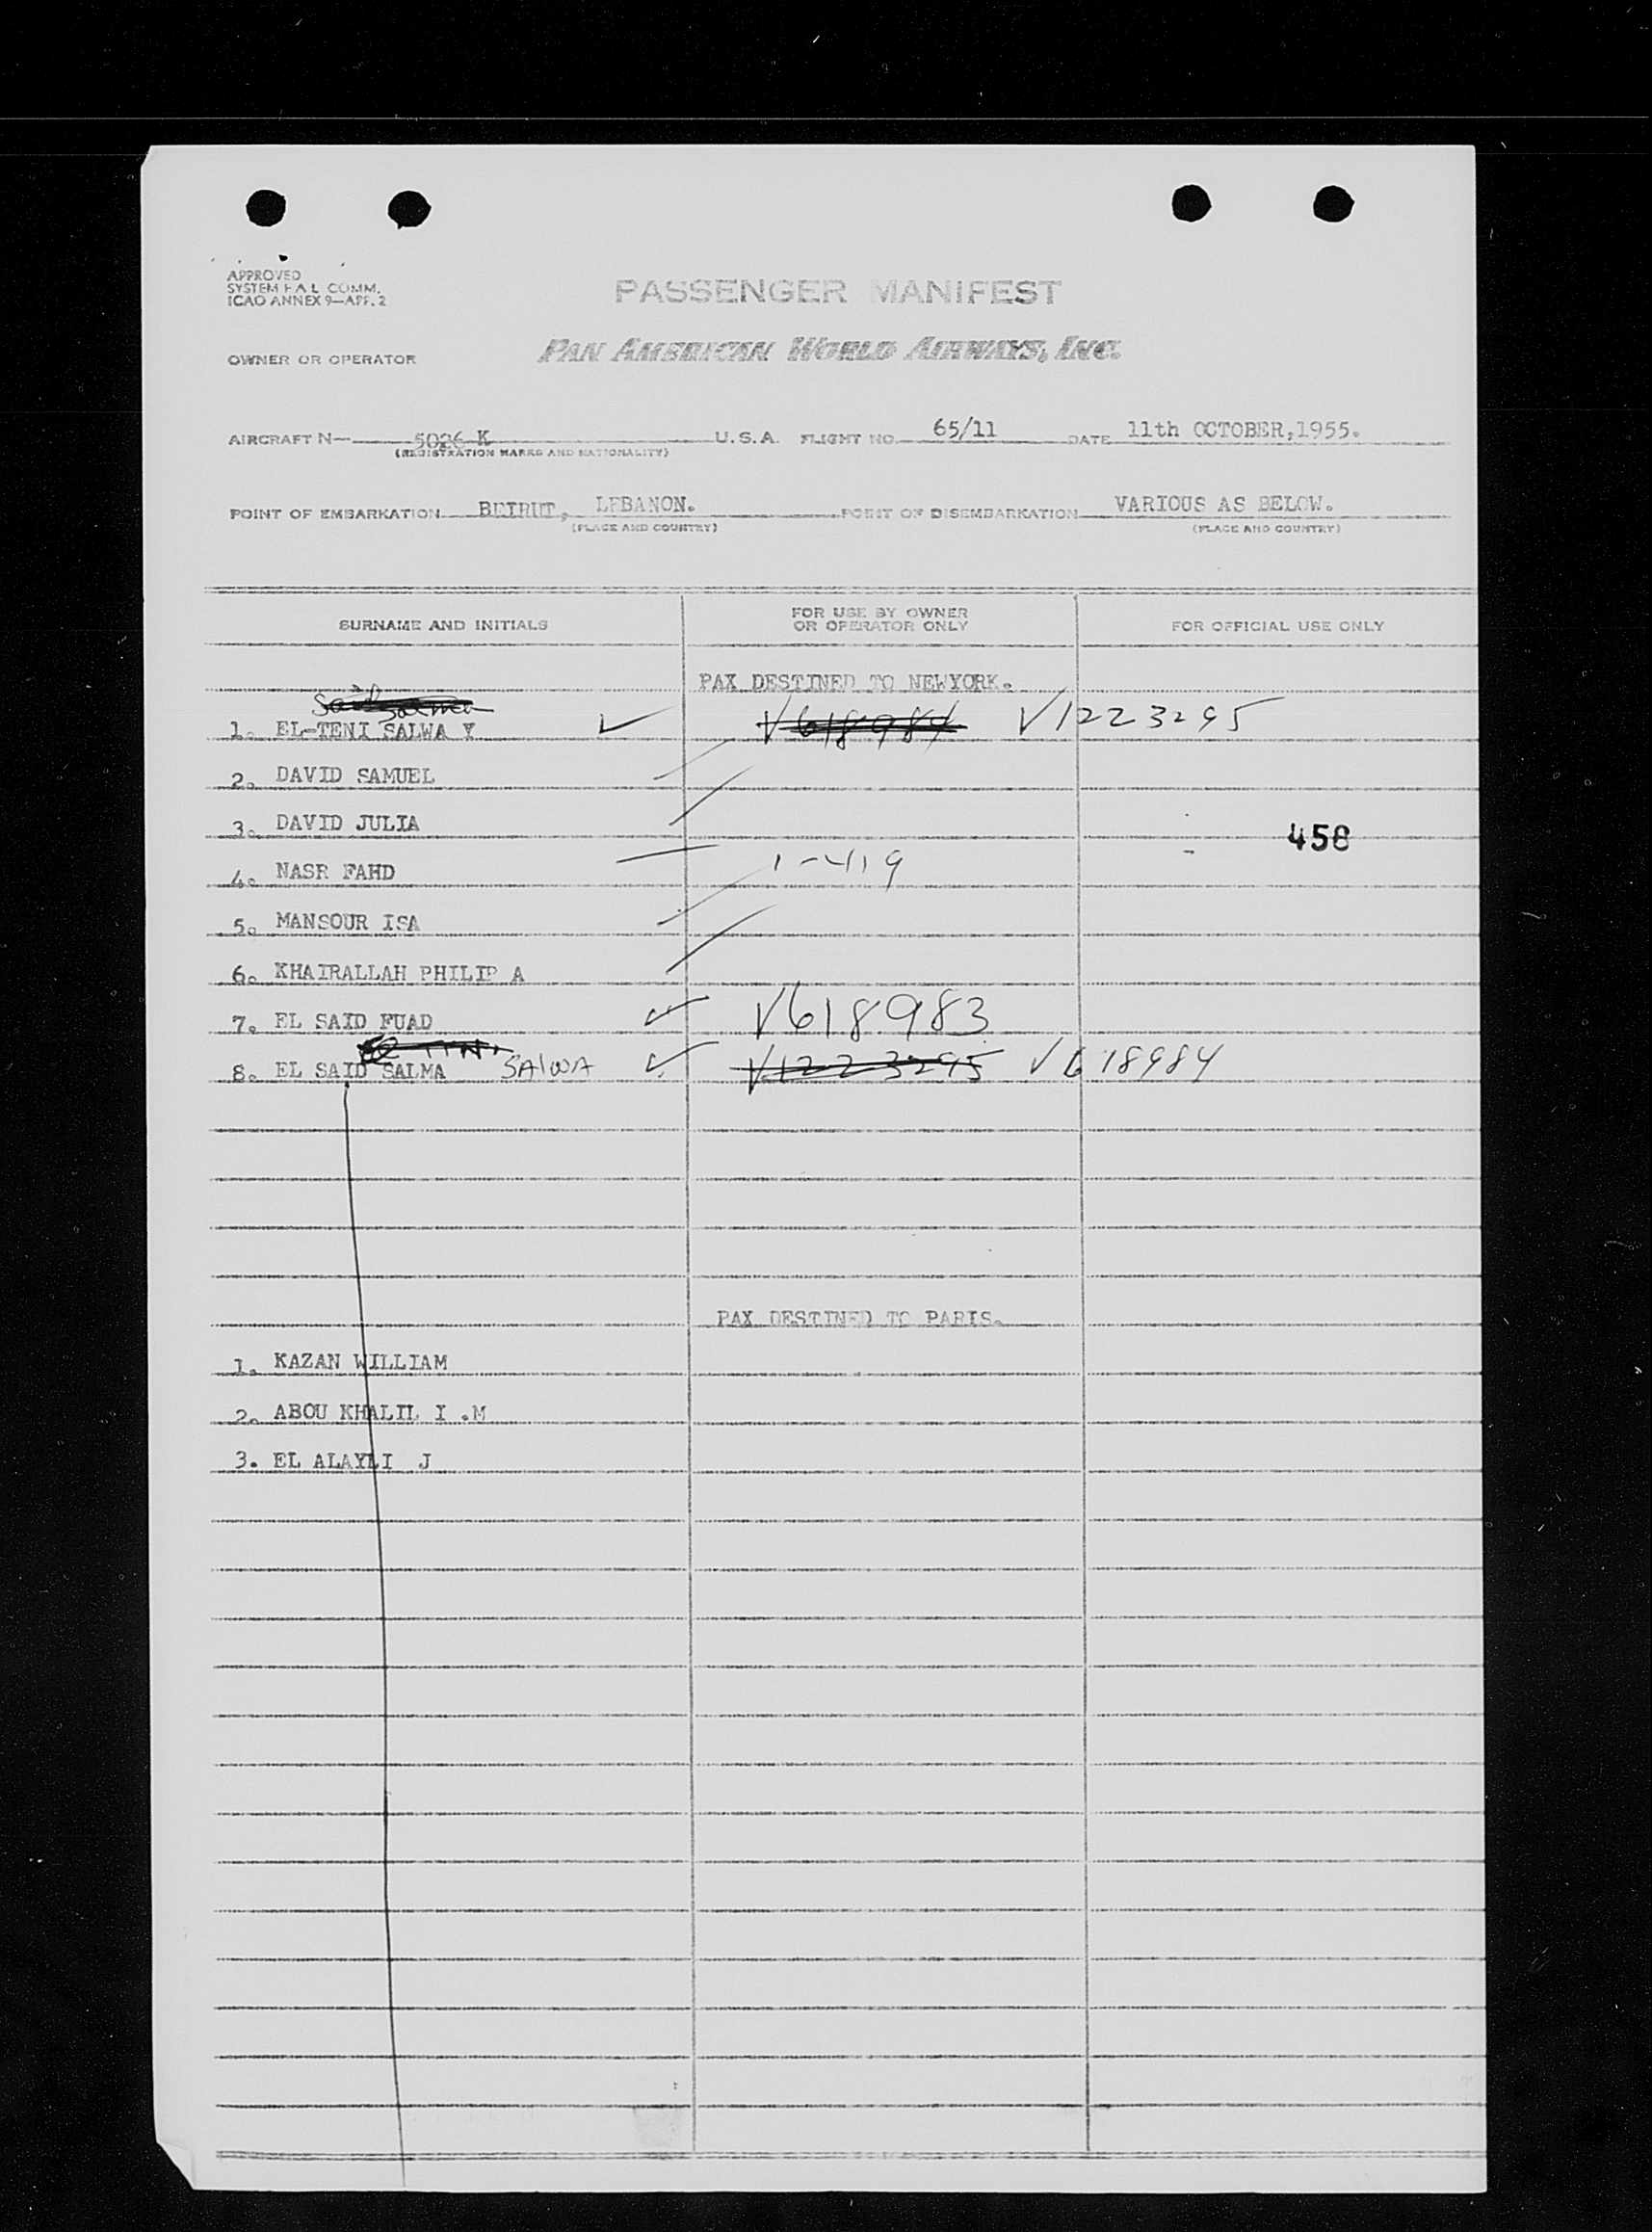 APPROVED
SYSTEM FAL COMM.
ICAO ANNEX 9—APP. 2
PASSENGER MANIFEST
OWNER OR OPERATOR PAN AMERICAN WORLD AIRWAYS, INC.
AIRCRAFT N— 5026 K U.S.A. FLIGHT NO. 65/11 DATE 11th OCTOBER,1955.
(REGISTRATION MARKS AND NATIONALITY)
POINT OF EMBARKATION BEIRUT, LEBANON. POINT OF DISEMBARKATION VARIOUS AS BELOW.
(PLACE AND COUNTRY) (PLACE AND COUNTRY)
SURNAME AND INITIALS FOR USE BY OWNER OR OPERATOR ONLY FOR OFFICIAL USE ONLY
PAX DESTINED TO NEWYORK.
1. EL-TENI SALWA Y V618984 V1223295
2. DAVID SAMUEL
3. DAVID JULIA
458
4. NASR FAHD 1-419
5. MANSOUR ISA
6. KHAIRALLAH PHILIP A
7. EL SAID FUAD V618983
8. EL SAID SALMA SALWA V1223295 V618984
PAX DESTINED TO PARIS.
1. KAZAN WILLIAM
2. ABOU KHALIL I .M
3. EL ALAYLI J